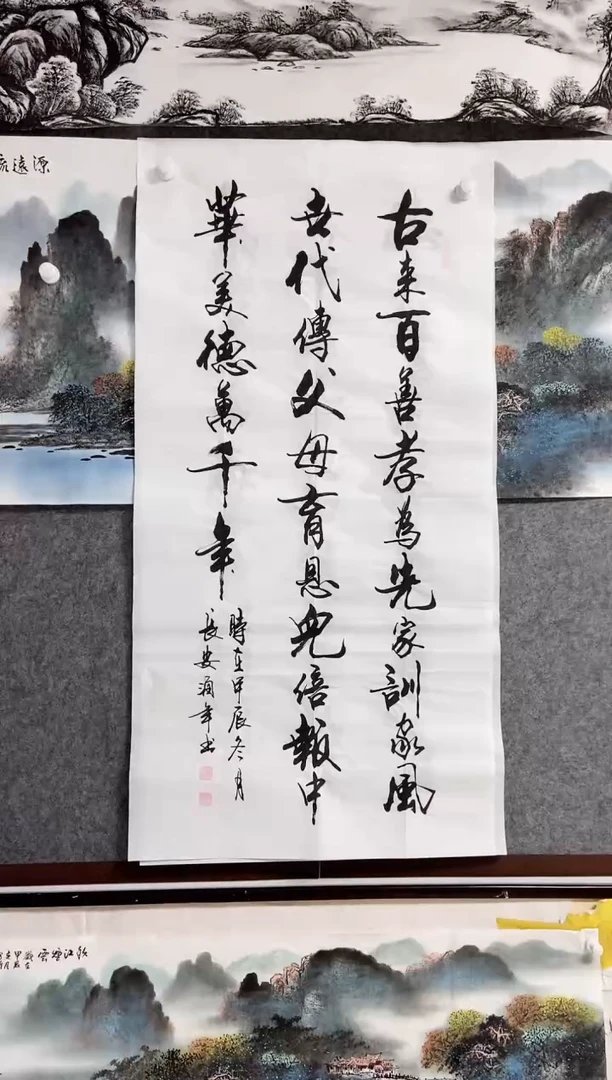 古来百善孝為先家訓家風
世代傳父母育恩兒倍報中
華美德萬千年
時在甲辰冬月
長安涌年书
源遠流